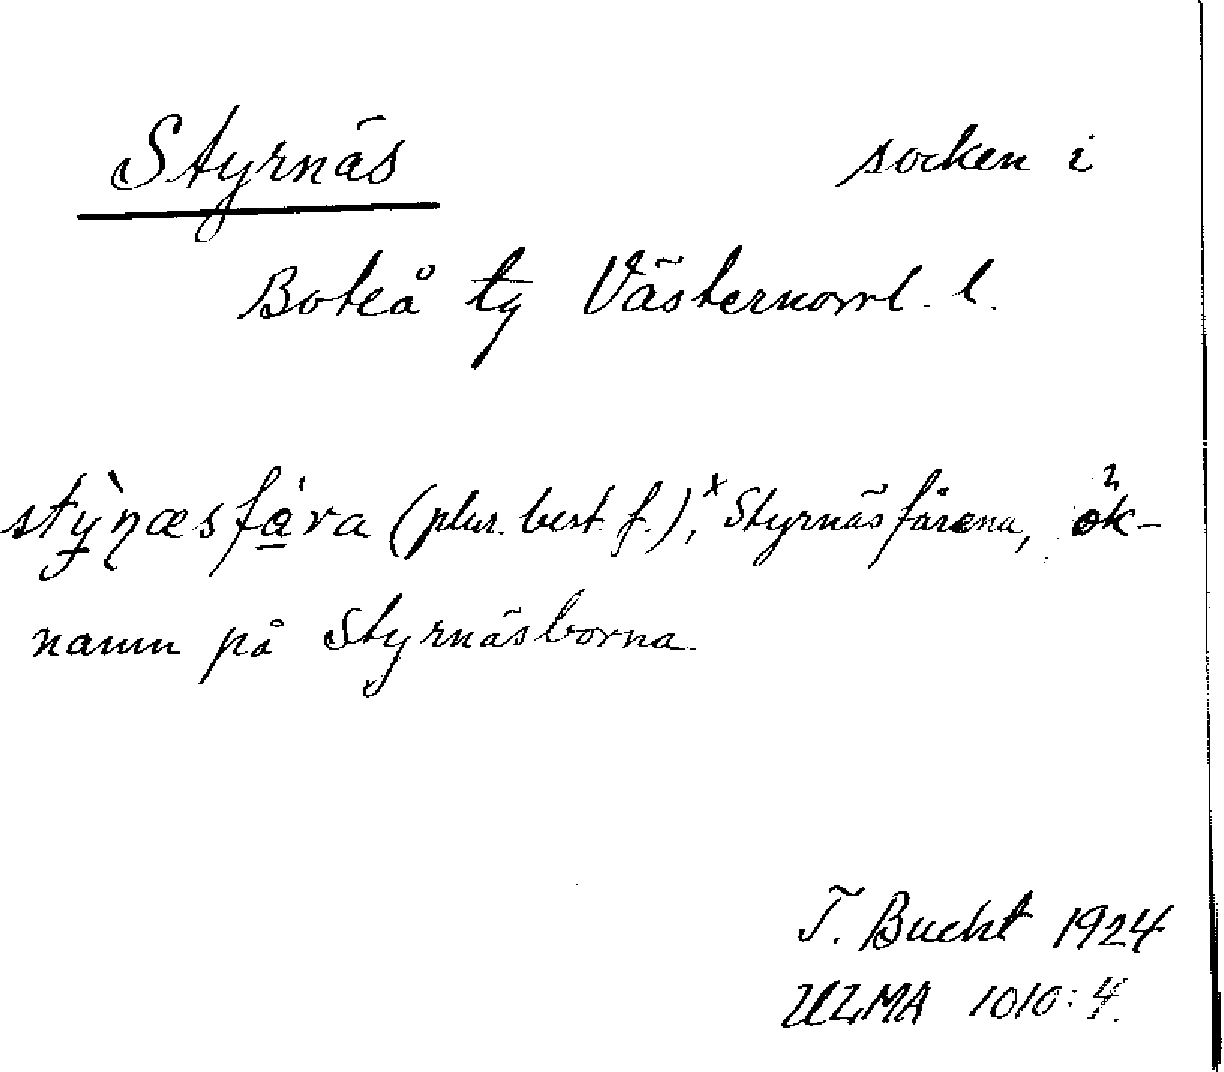 Styrnäs socken i
Boteå tg Västernorrl. l.
stỳ̠ɳæsfa̠ʹra (plur. best. f.), ˣStyrnäsfårena, ök-
namn på Styrnäsborna.
T. Bucht 1924
ULMA 1010:4.